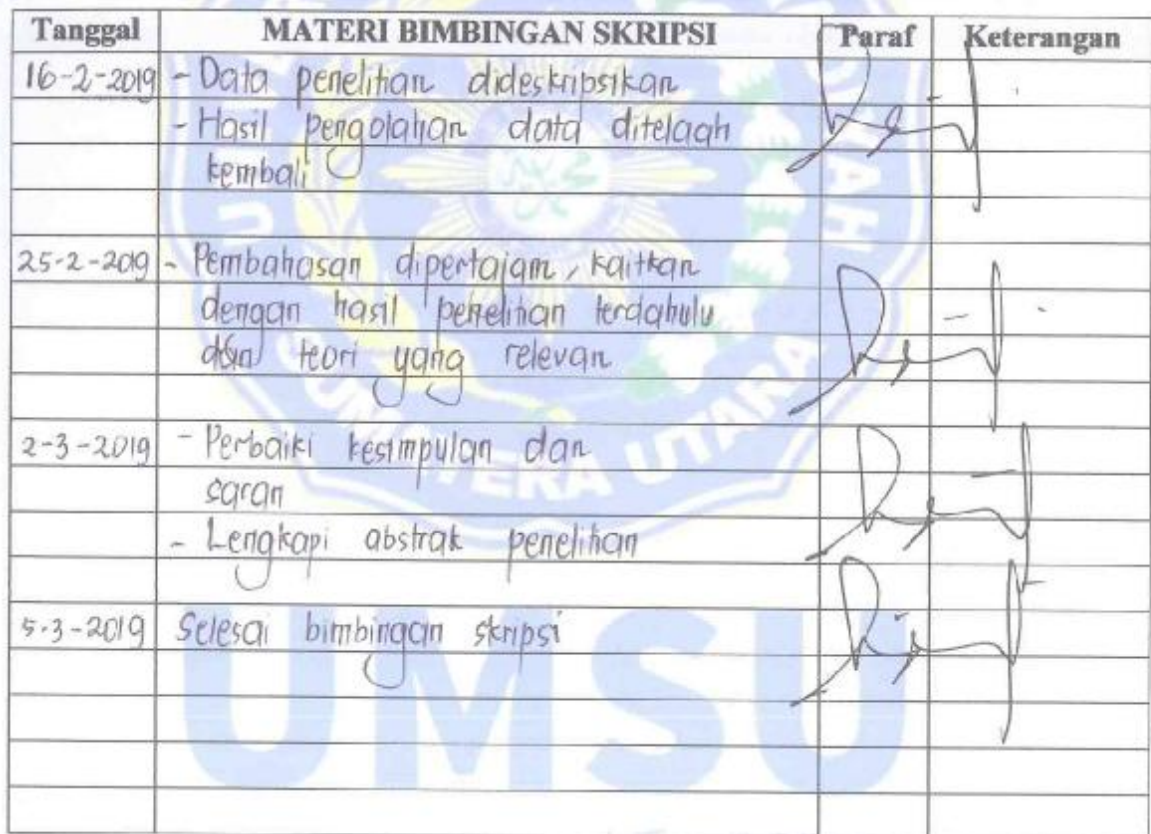 Tanggal MATERI BIMBINGAN SKRIPSI Paraf Keterangan
16-2-2019 - Data penelitian dideskripsikan
- Hasil pengolahan data ditelaah
kembali
25-2-2019 - Pembahasan dipertajam, kaitkan
dengan hasil penelitian terdahulu
dan teori yang relevan
2-3-2019 - Perbaiki kesimpulan dan
saran
- Lengkapi abstrak penelitian
5-3-2019 Selesai bimbingan skripsi
UMATERA UTARA
UMSU